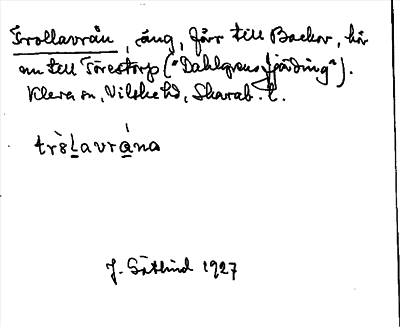 Trollavrån, äng, förr till Backor, hör
nu till Törestorp ("Dahlgrens fjärding").
Kleva sn, Vilske hd, Skarab. l.
tròlavrána
J. Götlind 1927